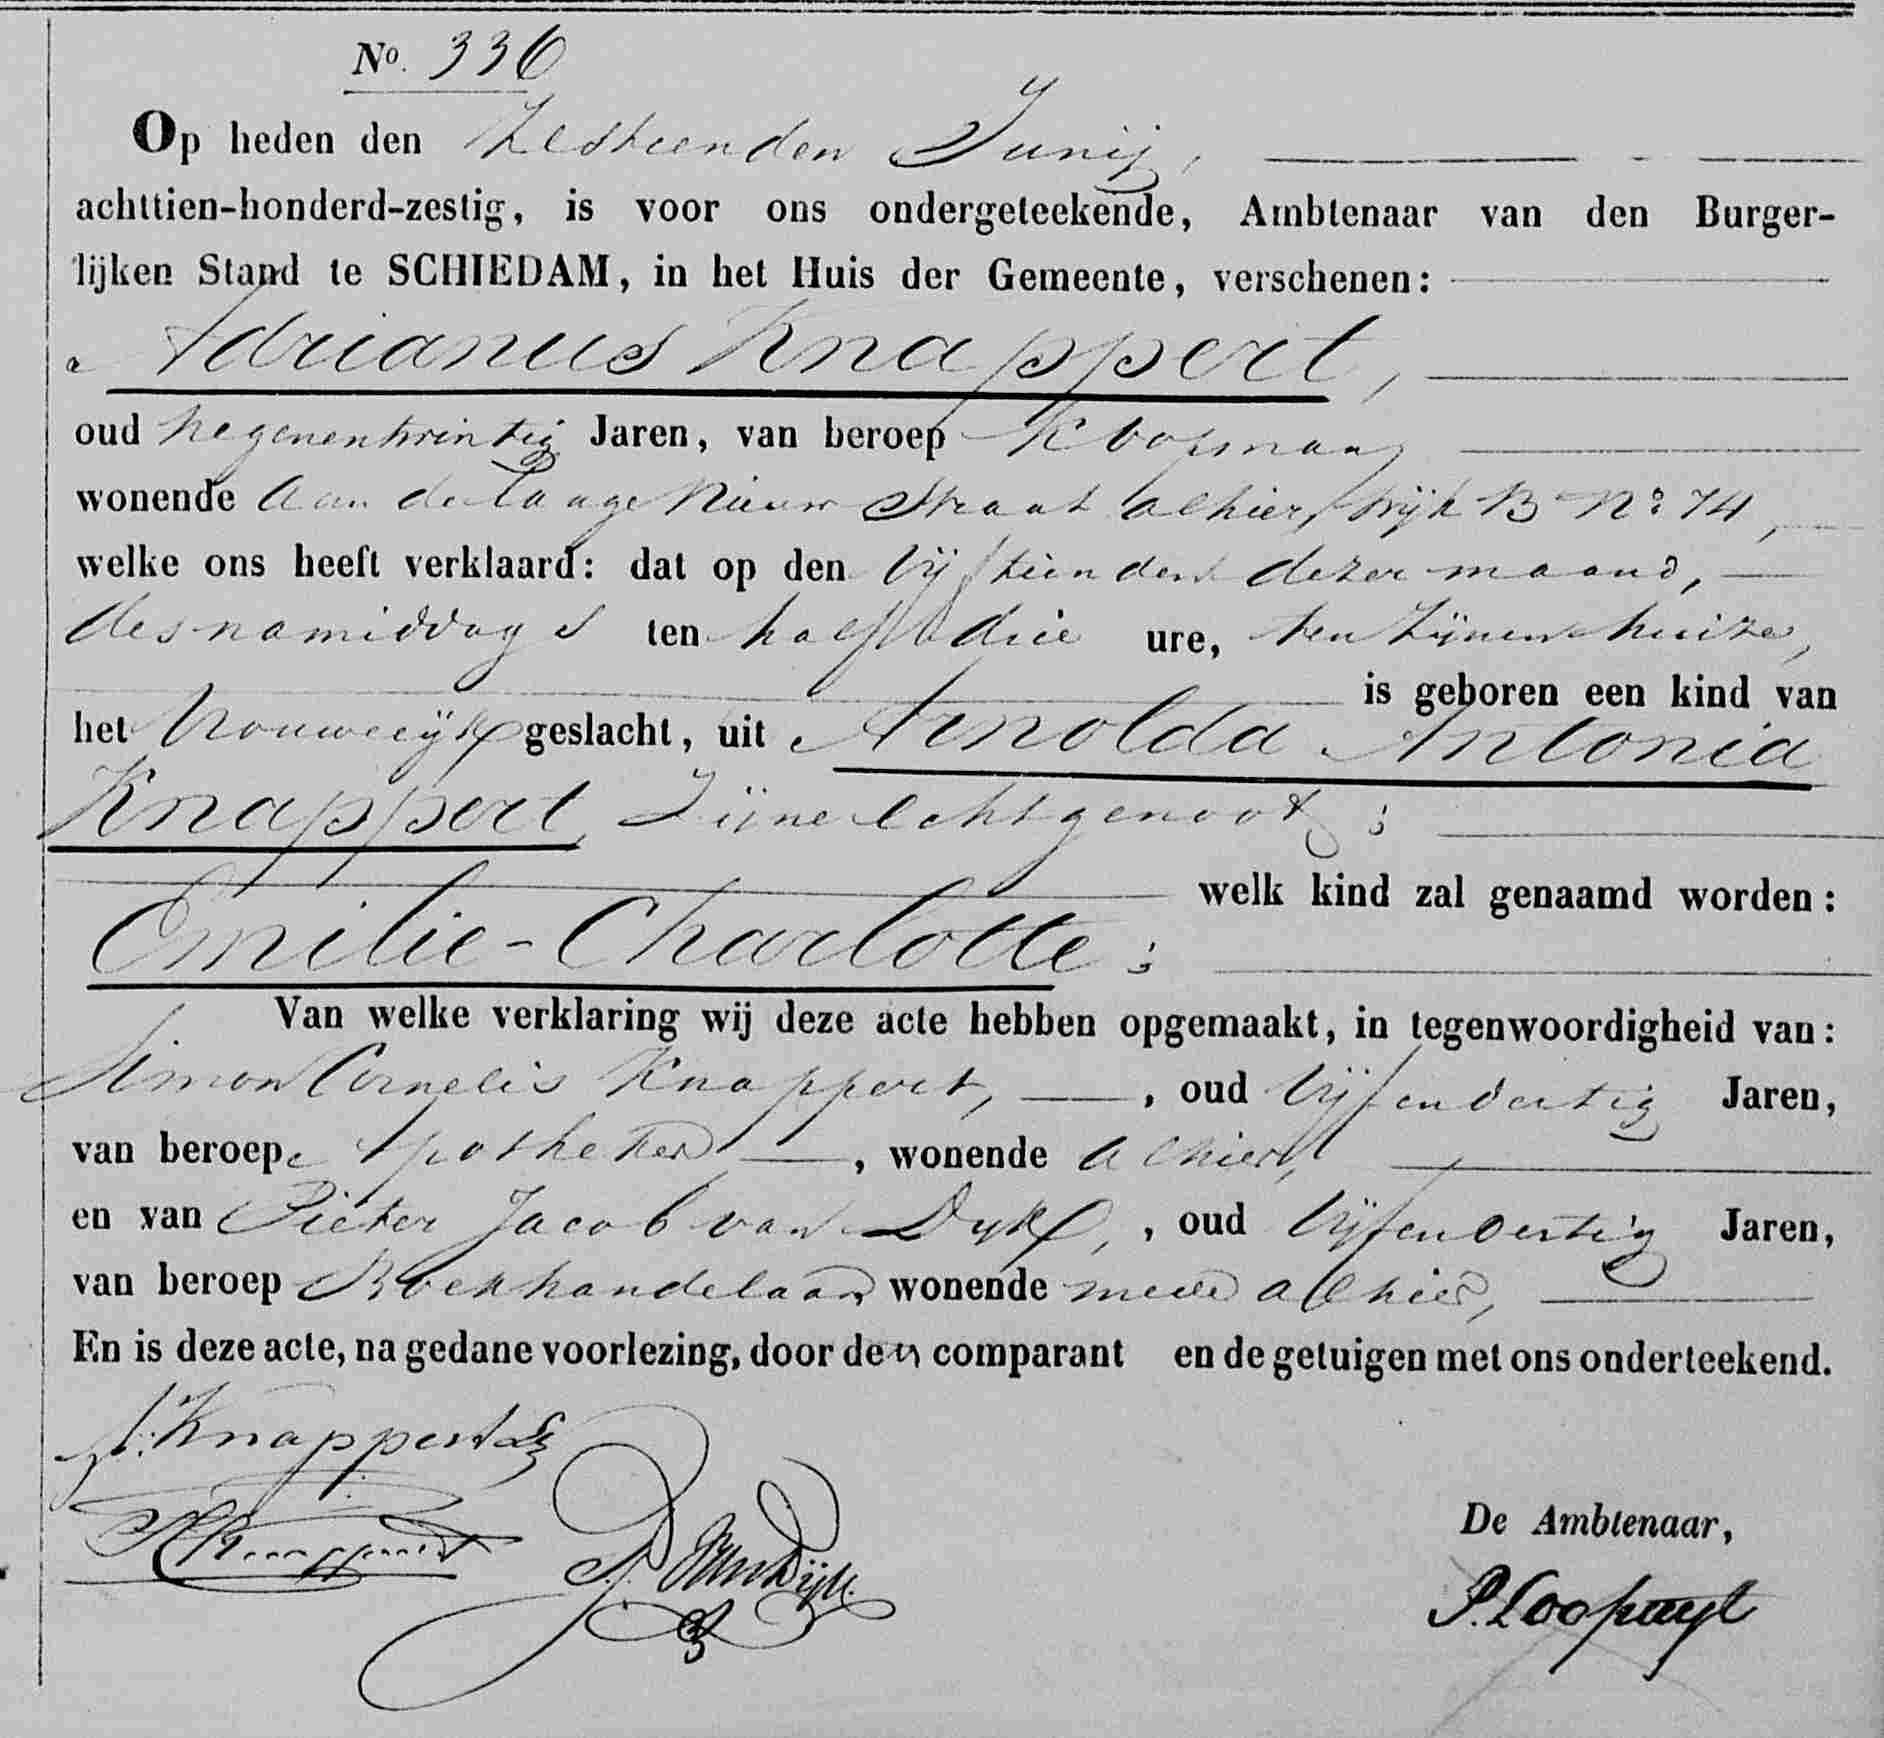 No. 336
Op heden den Zestienden Junij,
achttien-honderd-zestig, is voor ons ondergeteekende, Ambtenaar van den Burger-
lijken Stand te SCHIEDAM, in het Huis der Gemeente, verschenen:
Adrianus Knappert,
oud negenentwintig Jaren, van beroep Koopman,
wonende aan de Lange Nieuw Straat alhier, Wijk B No: 74,
welke ons heeft verklaard: dat op den vijftienden dezer maand,
des namiddags ten half drie ure, ten zijnen huize,
is geboren een kind van
het Vrouwelijk geslacht, uit Arnolda Antonia
Knappert, Zijne Echtgenoot;
welk kind zal genaamd worden:
Emilie-Charlotte;
Van welke verklaring wij deze acte hebben opgemaakt, in tegenwoordigheid van:
Simon Cornelis Knappert, , oud Vijfendertig Jaren,
van beroep Apotheker , wonende alhier,
en van Pieter Jacob van Dijk, , oud Vijfendertig Jaren,
van beroep Boekhandelaar, wonende mede alhier,
En is deze acte, na gedane voorlezing, door den comparant en de getuigen met ons onderteekend.
A. Knappert
Knappert
P. J. van Dijk
De Ambtenaar,
P. Loopuyt